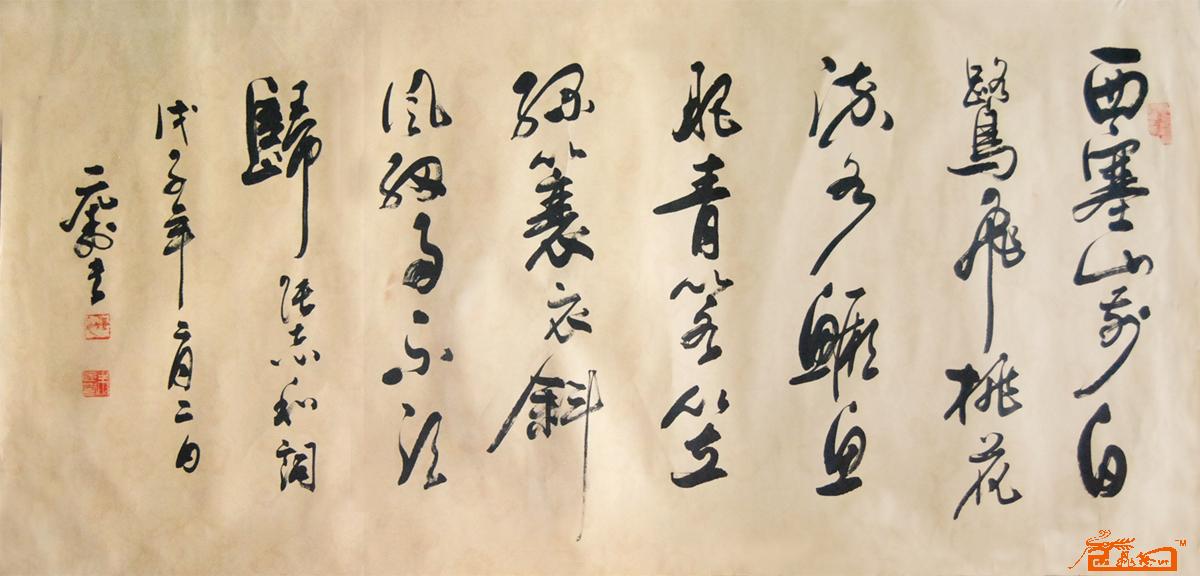 西塞山前白
鷺飛桃花
流水鱖魚
肥青箬笠
綠簑衣斜
風細雨不須
歸 張志和詞
戊子年二月二日
书